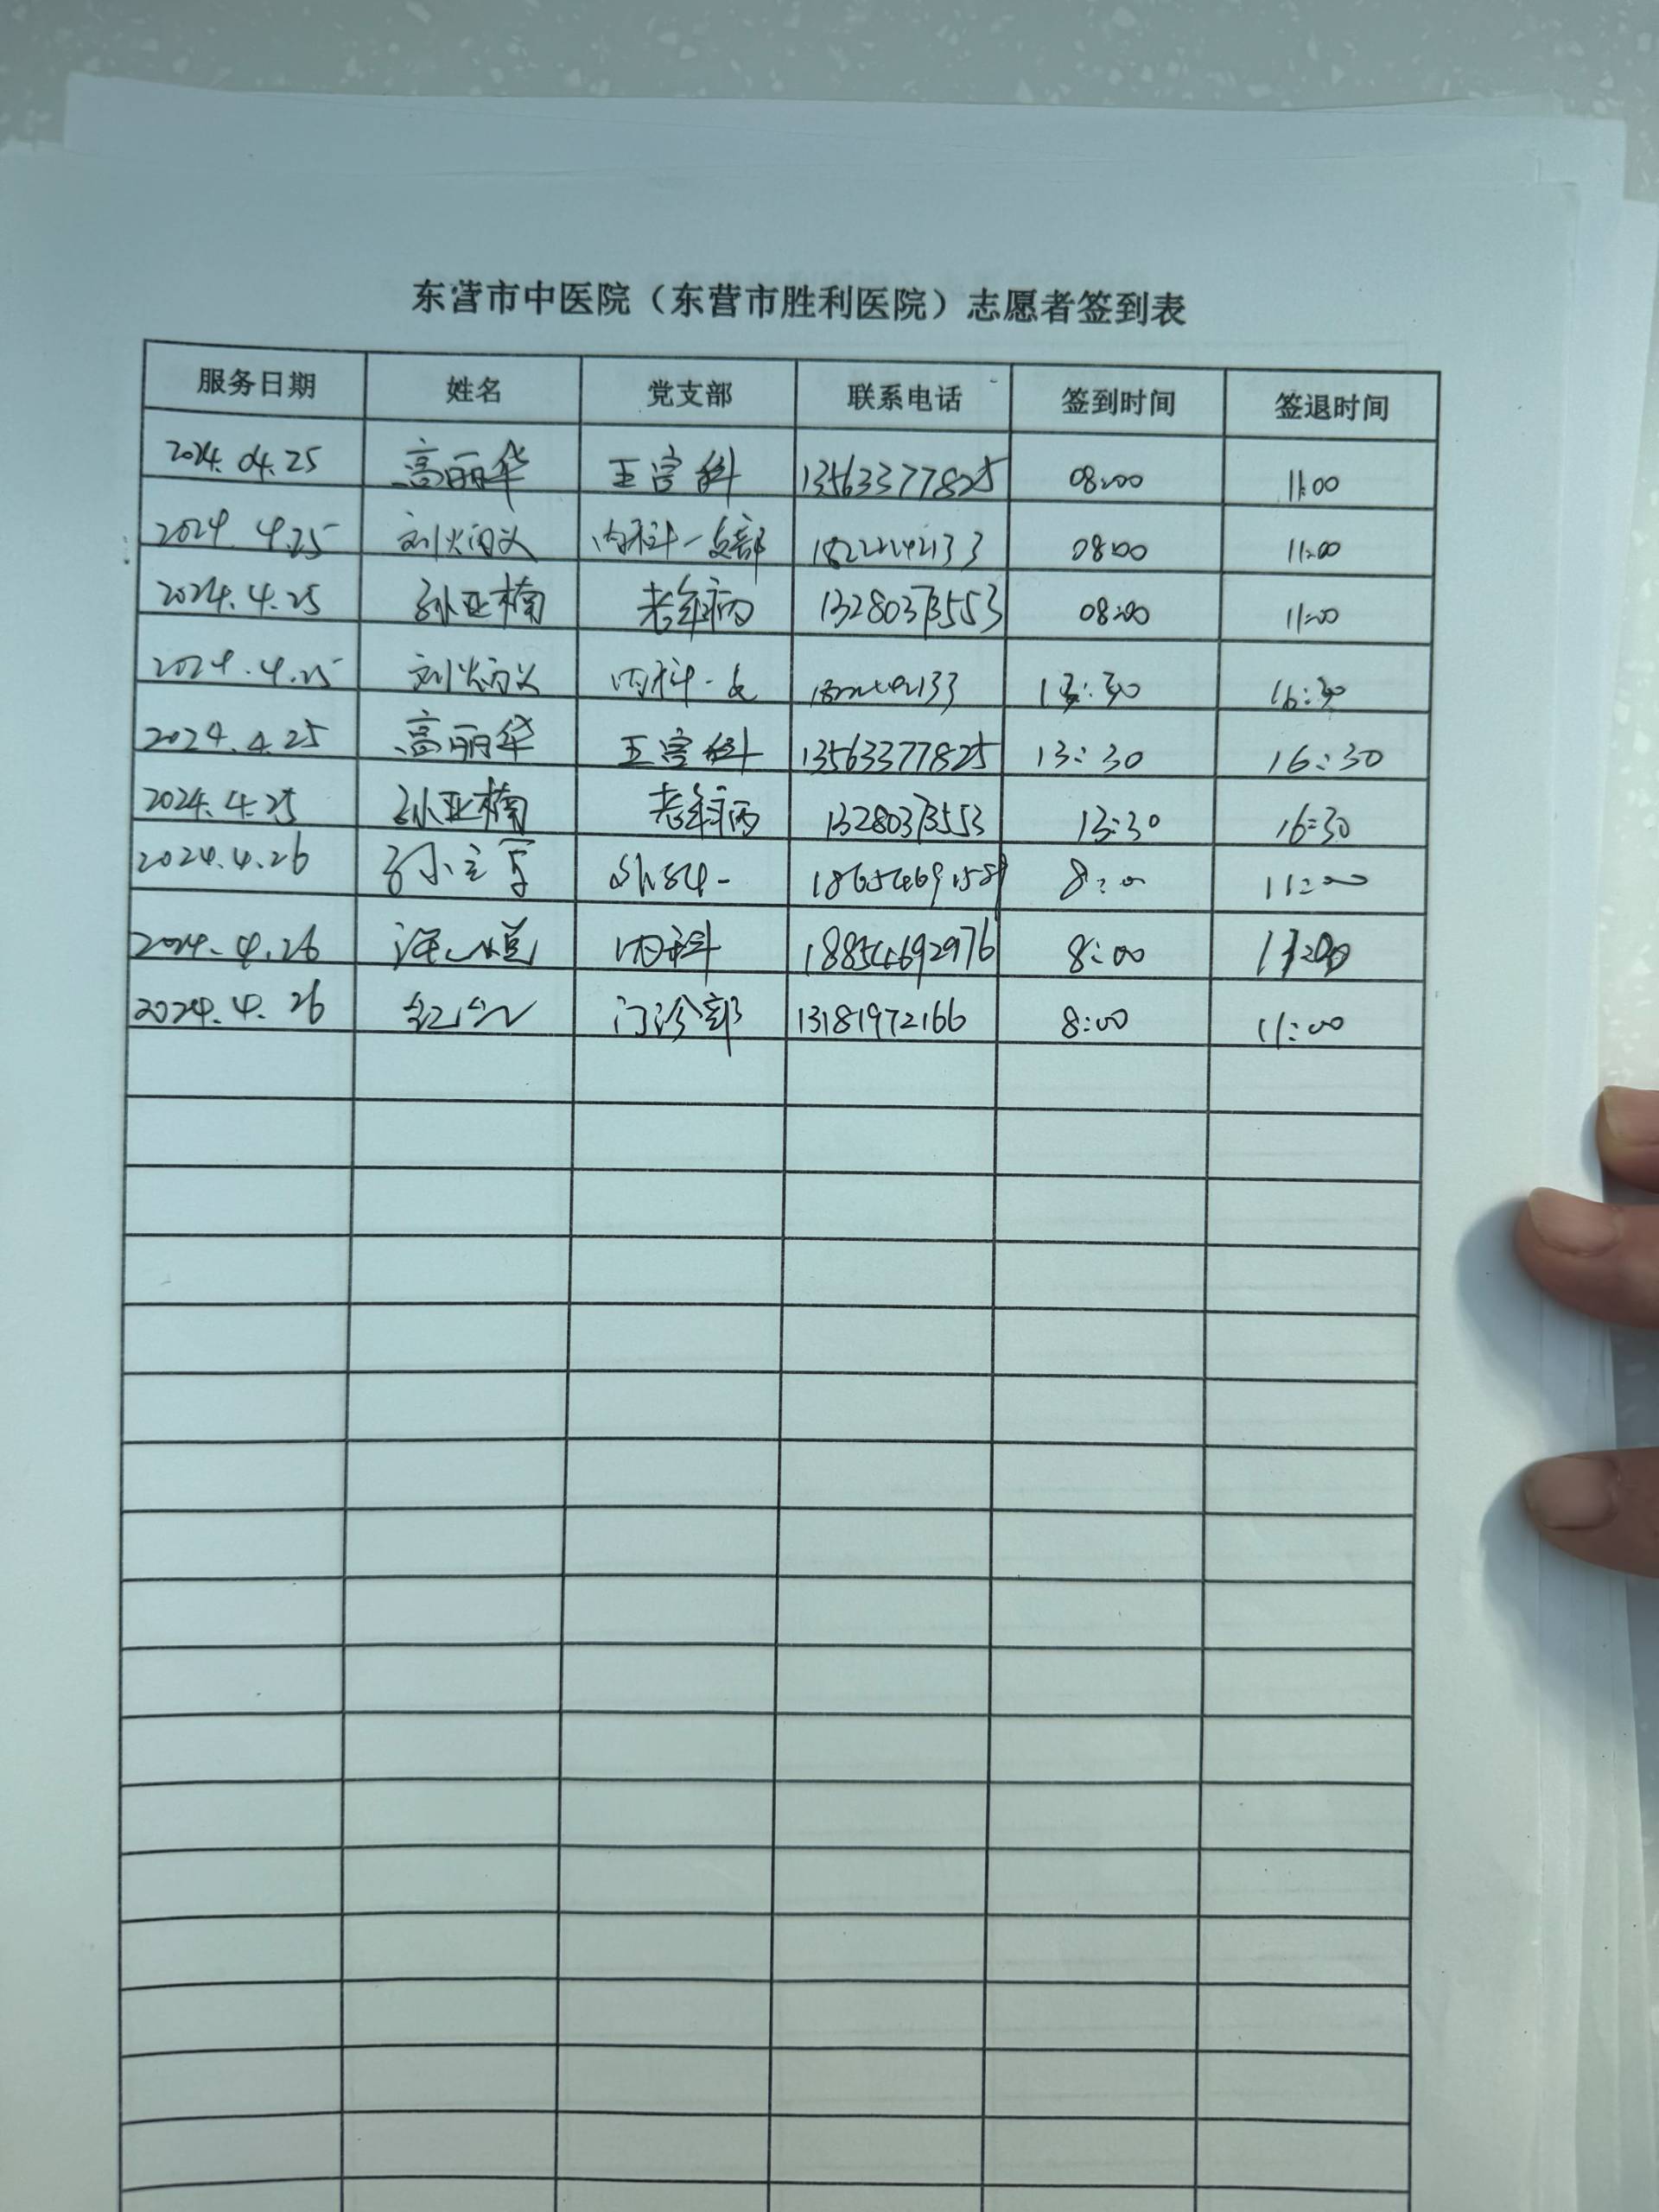 东营市中医院（东营市胜利医院）志愿者签到表
服务日期 姓名 党支部 联系电话 签到时间 签退时间
2024.04.25 高丽华 五官科 13563377825 08:00 11:00
2024.4.25 刘炳义 内科一支部 08:00 11:00
2024.4.25 孙亚楠 老年病 13280373553 08:00 11:00
2024.4.25 刘炳义 内科一支 13:30 16:30
2024.4.25 高丽华 五官科 13563377825 13:30 16:30
2024.4.25 孙亚楠 老年病 13280373553 13:30 16:30
2024.4.26 外科一 8:00 11:00
2024.4.26 内科 18854692976 8:00 11:00
2024.4.26 门诊部 13181972166 8:00 11:00